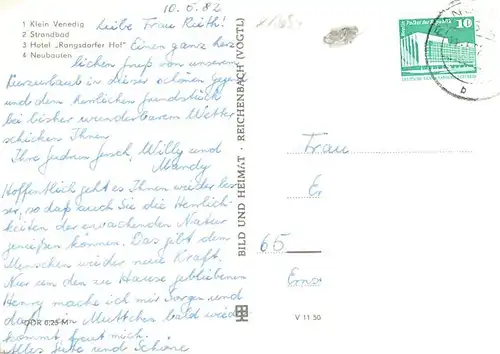 10. 6. 82
1 Klein Venedig
2 Strandbad
3 Hotel „Rangsdorfer Hof"
4 Neubauten
Liebe Frau Rieth!
Einen ganz herz
lichen Gruß von unserem
Kurzurlaub in dieser schönen Gegend
und dem herrlichen Grundstück
bei bisher wunderbarem Wetter
schicken Ihnen
Ihre Gudrun, Willy und
Mandy
Hoffentlich geht es Ihnen wieder bes
ser, so daß auch Sie die Herrlich-
keiten der erwachenden Natur
genießen können. Das gibt dem
Menschen wieder neue Kraft.
Nur um den zu Hause gebliebenen
Henry mache ich mir Sorgen und
daß sein Muttchen bald wieder
kommt, freut mich.
Alles Gute und Schöne
DDR 0,25 M
BILD UND HEIMAT · REICHENBACH (VOGTL)
V 11 50
Berlin, Palast der Republik
10
DEUTSCHE DEMOKRATISCHE REPUBLIK
b
Frau
Er
65
Erns